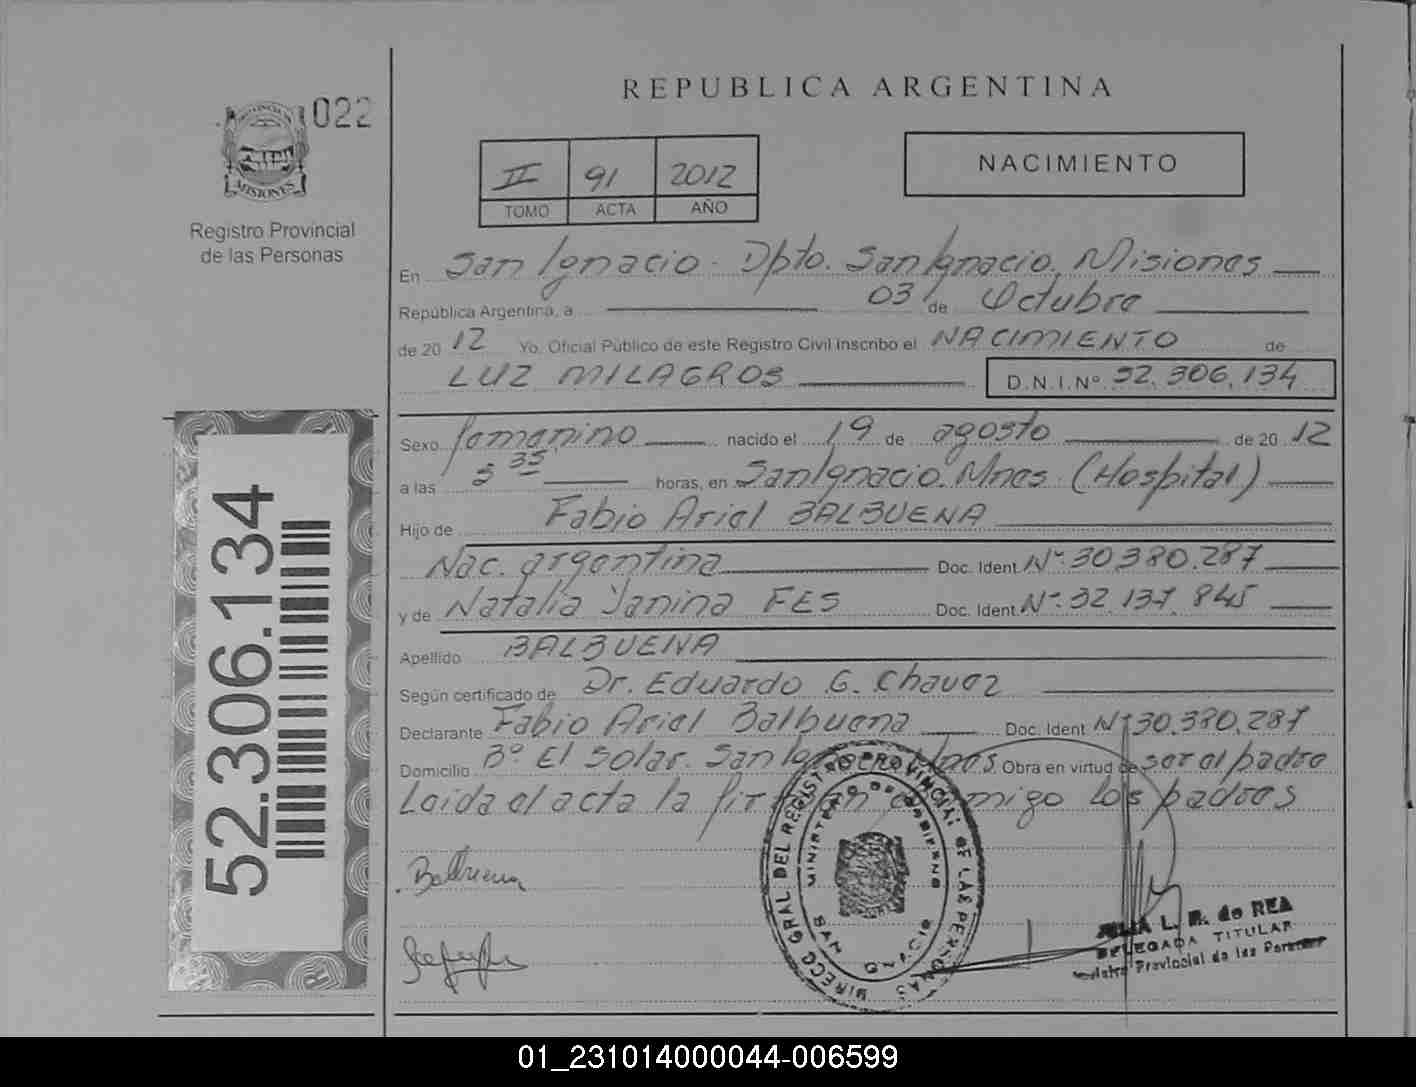 REPUBLICA ARGENTINA
022
MISIONES
Registro Provincial
de las Personas
II 91 2012
TOMO ACTA AÑO
NACIMIENTO
En San Ignacio - Dpto. San Ignacio. Misiones
República Argentina, a 03 de Octubre
de 2012 Yo, Oficial Público de este Registro Civil inscribo el NACIMIENTO de
LUZ MILAGROS D.N.I.Nº 52.306.134
Sexo femenino nacido el 19 de agosto de 2012
a las 5 35 horas, en San Ignacio. Mnes. (Hospital)
Hijo de Fabio Ariel BALBUENA
Nac. argentina Doc. Ident. Nº 30380.287
y de Natalia Yanina FES Doc. Ident. Nº 32.137.845
Apellido BALBUENA
Según certificado de Dr. Eduardo G. Chavez
Declarante Fabio Ariel Balbuena Doc. Ident. Nº 30.380.287
Domicilio Bº El Solar. San Mnes. Obra en virtud de ser el padre
Leida el acta la los padres
Balbuena
52.306.134
DEL REGISTRO PROVINCIAL DE LAS PERSONAS
MINISTERIO DE GOBIERNO
SAN IGNACIO
L. R. de REA
DELEGADA TITULAR
Provincial de las Personas
01_231014000044-006599